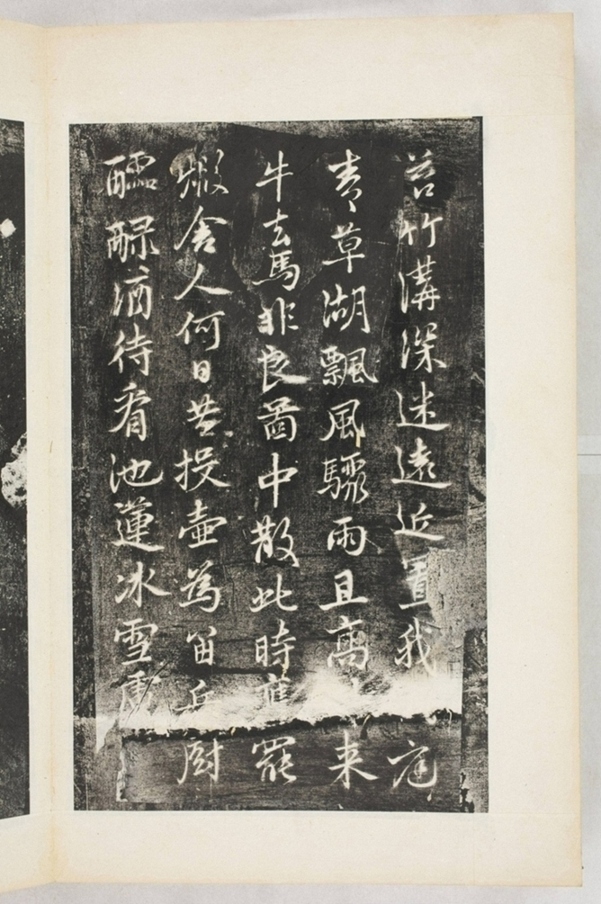 苦竹溝深迷遠近置我庭
青草湖飄風驟雨且寓来
牛去馬非良啚中散此時惟罷
人何日共投壺為留兵厨
醽醁酒待看池蓮冰雪膚